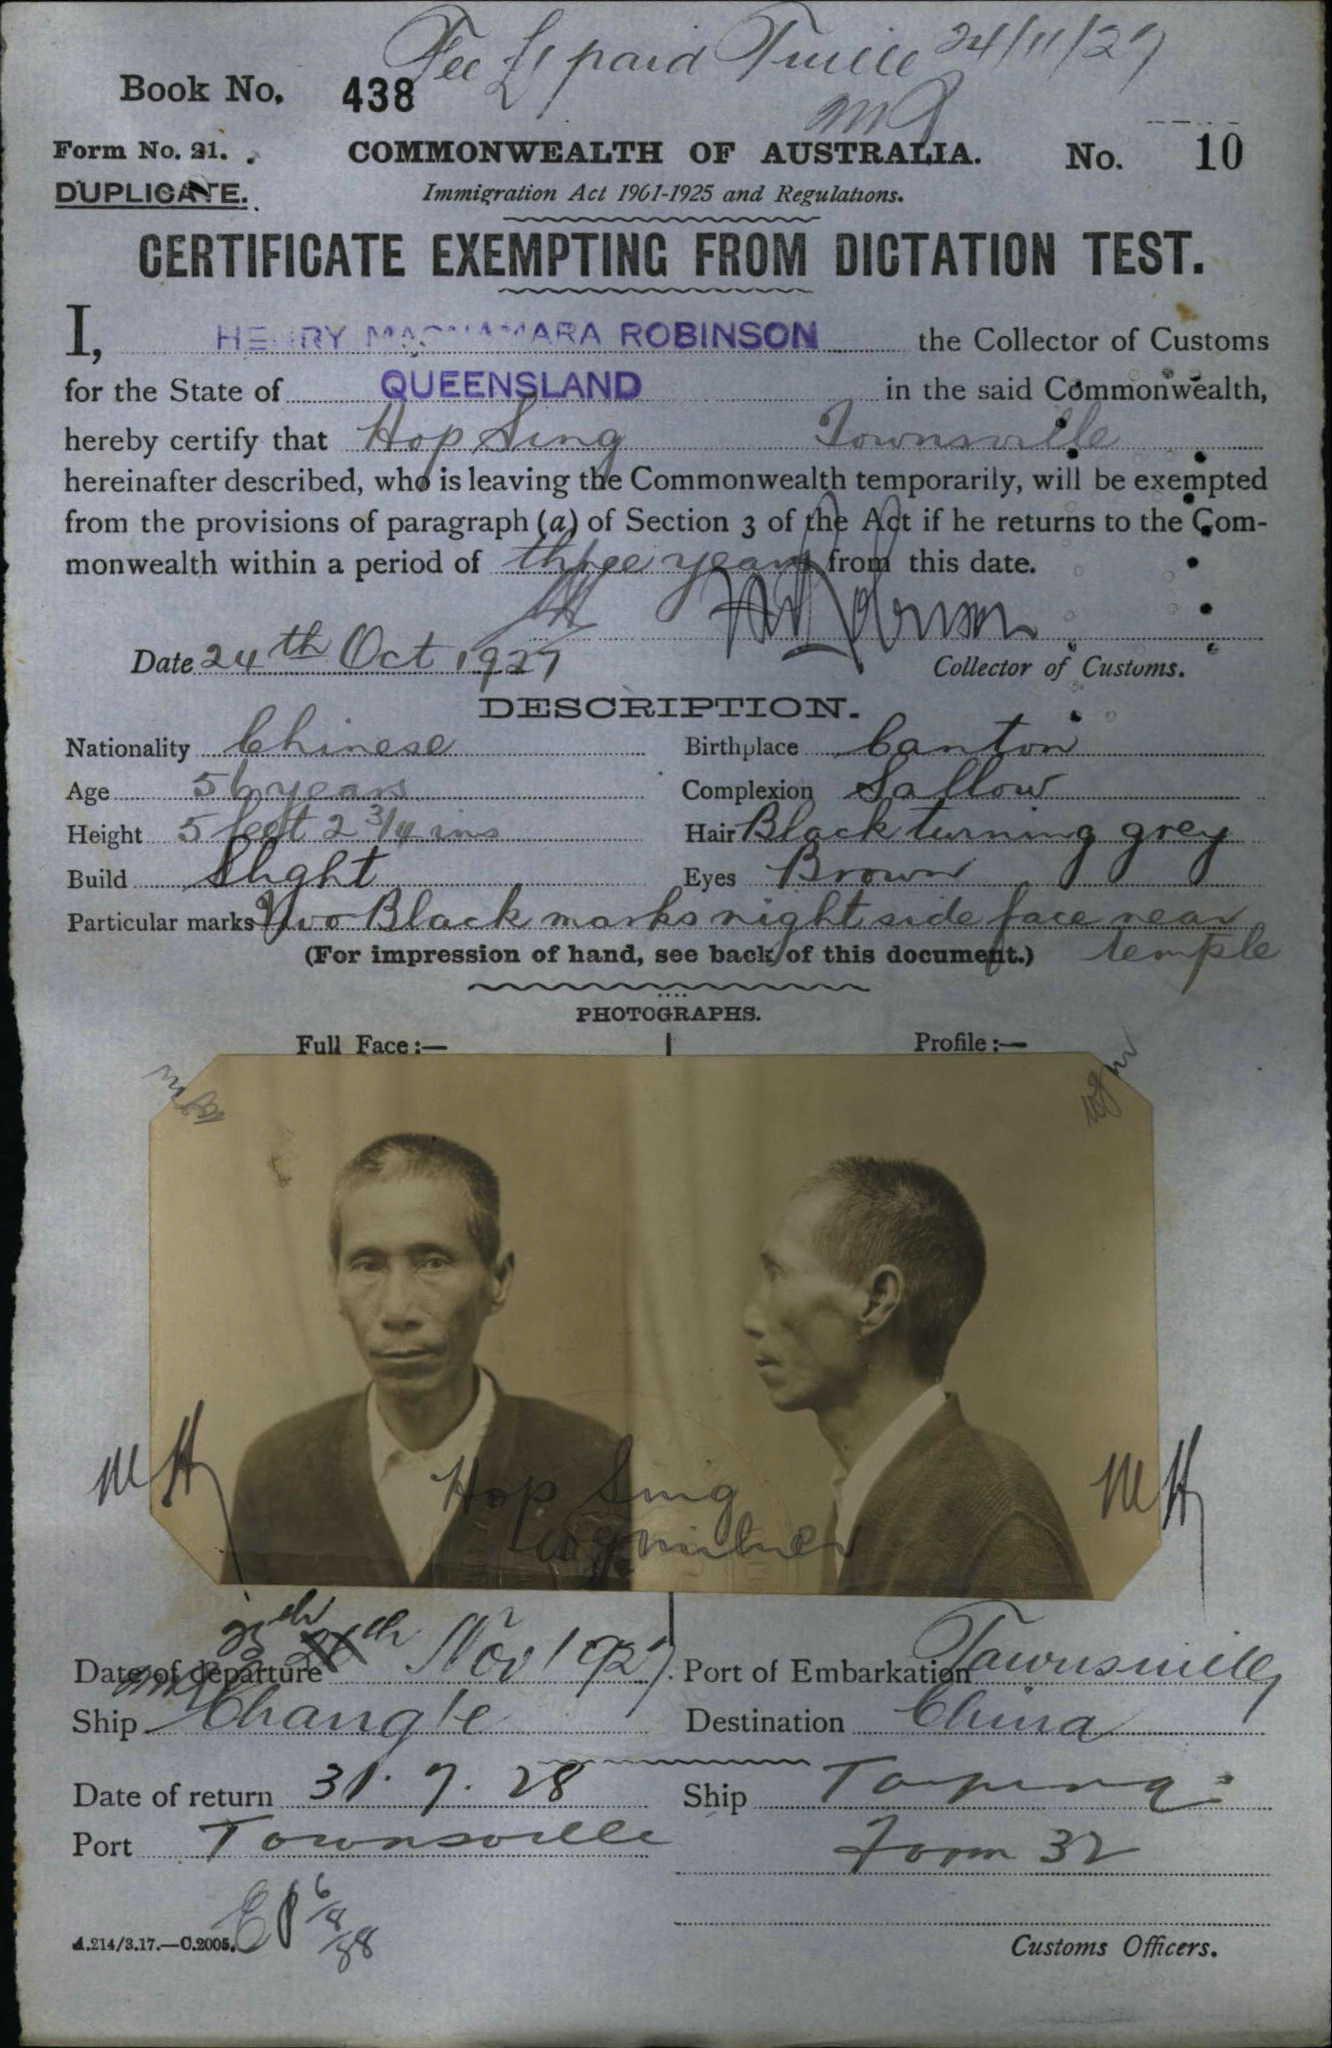 Fee £1 paid Tville 24/11/27
Book No. 438
Form No. 21.
COMMONWEALTH OF AUSTRALIA.
No. 10
DUPLICATE.
Immigration Act 1901-1925 and Regulations.
CERTIFICATE EXEMPTING FROM DICTATION TEST.
I, HENRY MACNAMARA ROBINSON the Collector of Customs
for the State of QUEENSLAND in the said Commonwealth,
hereby certify that Hop Sing Townsville
hereinafter described, who is leaving the Commonwealth temporarily, will be exempted
from the provisions of paragraph (a) of Section 3 of the Act if he returns to the Com-
monwealth within a period of three years from this date.
H M Robinson
Date 24th Oct 1927
Collector of Customs.
DESCRIPTION.
Nationality Chinese Birthplace Canton
Age 56 years Complexion Sallow
Height 5 feet 2 3/4 ins Hair Black turning grey
Build Slight Eyes Brown
Particular marks Two Black marks right side face near
temple
(For impression of hand, see back of this document.)
PHOTOGRAPHS.
Full Face:— Profile:—
MH MH
Hop Sing
W G Milner
25th 24th
Date of departure Nov 1927. Port of Embarkation Townsville
Ship Changte Destination China
Date of return 31.7.28 Ship Taiping
Port Townsville Form 32
6/8/28
A.214/3.17.—C.2005.
Customs Officers.